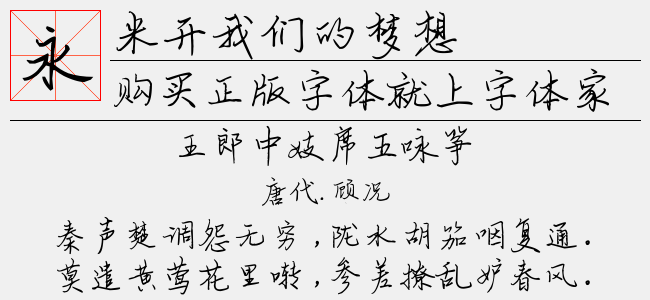 永
米开我们的梦想
购买正版字体就上字体家
王郎中妓席五咏筝
唐代.顾况
秦声楚调怨无穷,陇水胡笳咽复通.
莫遣黄莺花里啭,参差撩乱妒春风.